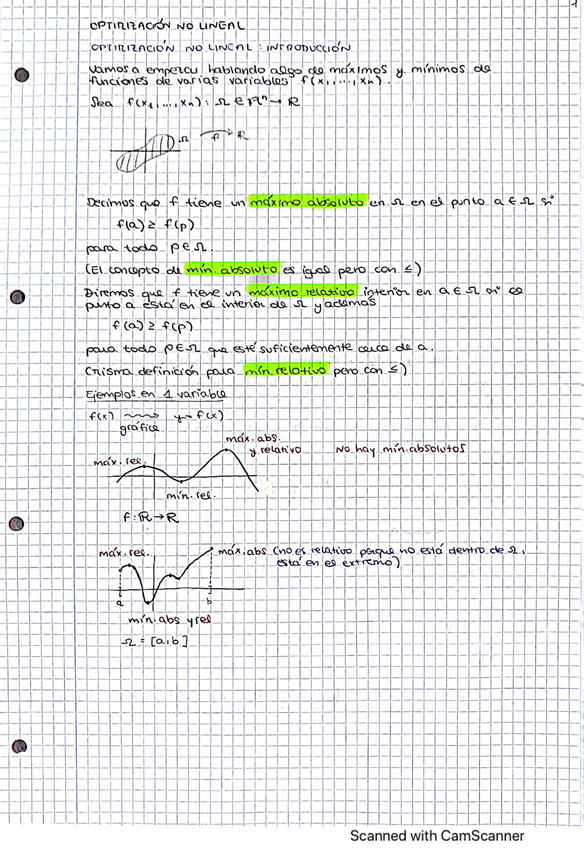 1
OPTIMIZACIÓN NO LINEAL
OPTIMIZACIÓN NO LINEAL: INTRODUCCIÓN
Vamos a empezar hablando algo de máximos y mínimos de
funciones de varias variables f(x₁,...,xₙ).
Sea f(x₁,...,xₙ): Ω ∈ ℝⁿ → ℝ
Ω f ℝ
Decimos que f tiene un máximo absoluto en Ω en el punto a ∈ Ω si
f(a) ≥ f(p)
para todo p ∈ Ω.
(El concepto de mín. absoluto es igual pero con ≤)
Diremos que f tiene un máximo relativo interior en a ∈ Ω si el
punto a está en el interior de Ω y además
f(a) ≥ f(p)
para todo p ∈ Ω que esté suficientemente cerca de a.
(misma definición para mín. relativo pero con ≤)
Ejemplos en 1 variable
f(x) y = f(x)
gráfica
máx. abs.
máx. rel. y relativo No hay mín. absolutos
mín. rel.
f: ℝ → ℝ
máx. rel. máx. abs (no es relativo porque no está dentro de Ω,
está en el extremo)
a b
mín. abs y rel
Ω = [a,b]
Scanned with CamScanner